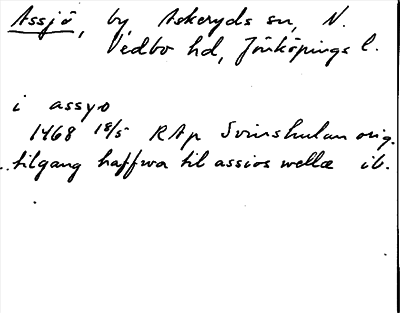 Assjö, by, Askeryds sn, N.
Vedbo hd, Jönköpings l.
i assyo
1468 18/5 RAp Svinshulan orig.
.. tilgang haffwa til assios wellæ ib.